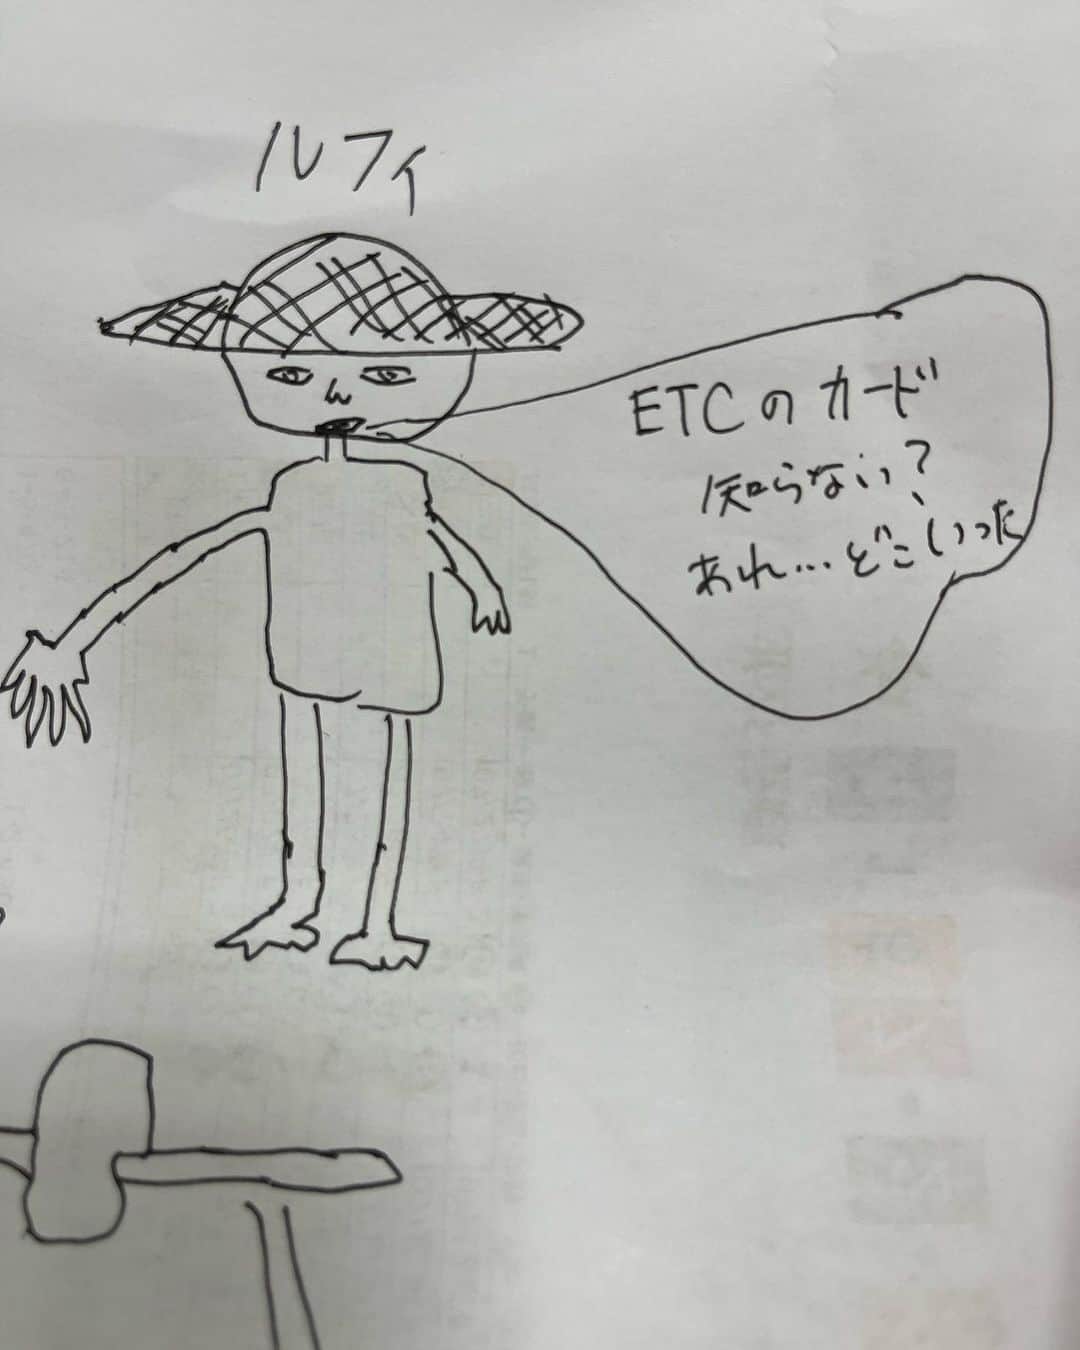 ルフィ
ETCのカード
知らない?
あれ...どこいった